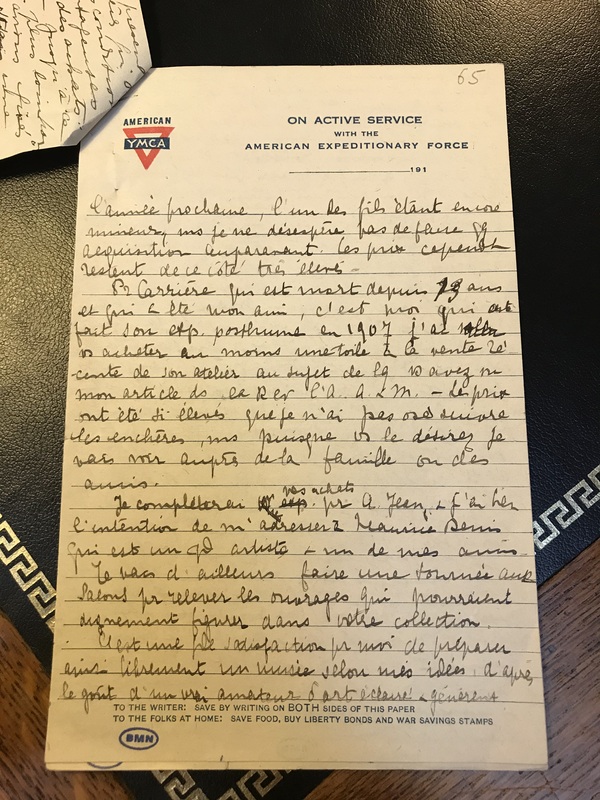 65
AMERICAN
YMCA
ON ACTIVE SERVICE
WITH THE
AMERICAN EXPEDITIONARY FORCE
191
l'année prochaine, l'un des fils étant encore
mineur, ms je ne désespère pas de faire qq
acquisition auparavant. Les prix cependt
restent de ce côté très élevés -
Pr Carrière qui est mort depuis 13 ans
et qui a été mon ami, c'est moi qui ai
fait son exp. posthume en 1907 j'ai
vs acheter au moins une toile à la vente ré-
cente de son atelier au sujet de lq vs avez vu
mon article ds la Rev. l'A. A & M. - Les prix
ont été si élevés que je n'ai pas osé suivre
les enchères, ms puisque vs le désirez je
vais voir auprès de la famille ou des
amis.
Je complèterai vos achats pr A. Jean, & j'ai bien
l'intention de m'adresser à Maurice Denis
qui est un gd artiste & un de mes amis.
Je vais d'ailleurs faire une tournée aux
Salons pr relever les ouvrages qui pourraient
dignement figurer dans votre collection.
C'est une gde satisfaction pr moi de préparer
ainsi librement un musée selon mes idées, d'après
le goût d'un vrai amateur d'art éclairé & généreux
TO THE WRITER: SAVE BY WRITING ON BOTH SIDES OF THIS PAPER
TO THE FOLKS AT HOME: SAVE FOOD, BUY LIBERTY BONDS AND WAR SAVINGS STAMPS
BMN